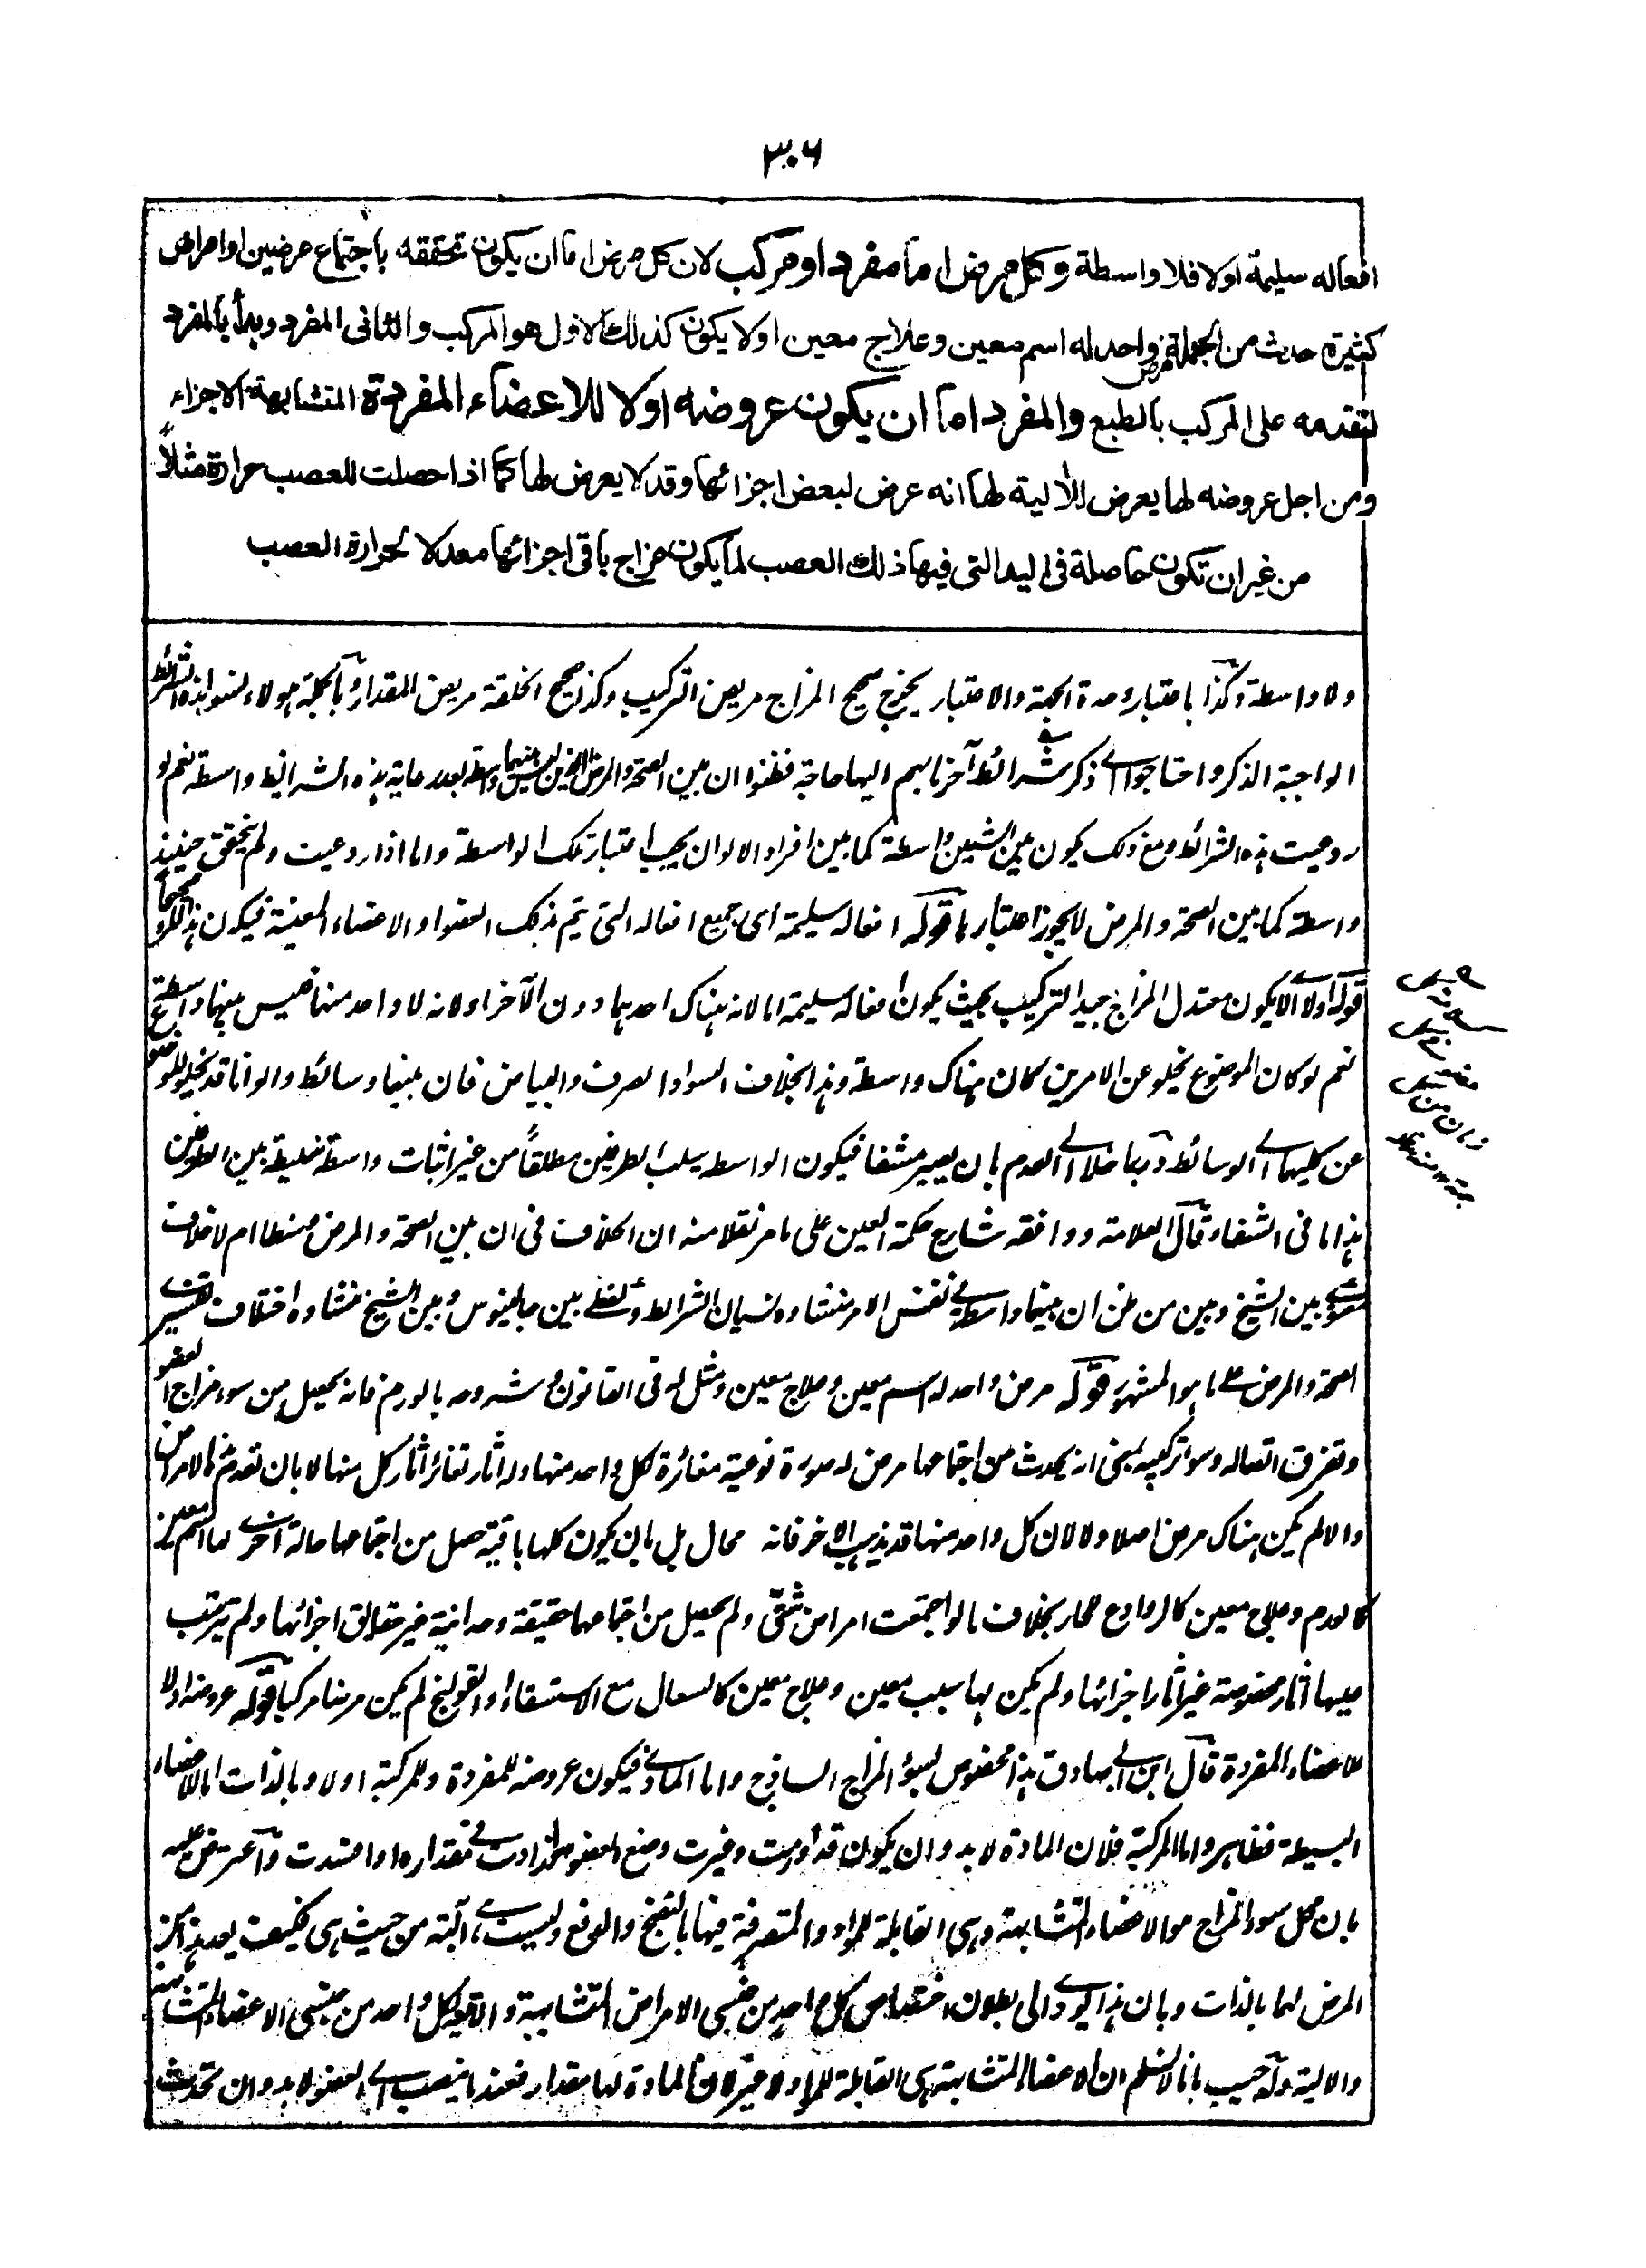 ٣٠٦
افعاله سليمة اولا فلا واسطة وكل مرض اما مفرد او مركب لان كل مرض اما ان يكون تحققه باجتماع مرضين او امراض
كثيرة حدث من الجملة مرض واحد له اسم معين وعلاج معين اولا يكون كذلك الاول هو المركب والثانى المفرد وبدأ بالمفرد
لتقدمه على المركب بالطبع والمفرد اما ان يكون عروضه اولا للاعضاء المفردة المتشابهة الاجزاء
ومن اجل عروضه لها يعرض للألية لها انه عرض لبعض اجزائها وقد لا يعرض لها كما اذا حصلت للعصب حرارة مثلاً
من غير ان تكون حاصلة فى اليد التى فيها ذلك العصب لما يكون مزاج باقى اجزائها معدلا لحرارة العصب
ولا واسطة وكذا باعتبار وحدة الجهة والاعتبار يخرج صحيح المزاج مريض التركيب وكذا صحيح الخلقة مريض المقدار وبالجملة هولاء لنسوا هذه الشرائط
الواجبة الذكر واحتاجوا الے ذكر شرائط آخر ما بهم اليها حاجة فظنوا ان بين الصحة والمرض الذين ليس بينهما واسطة بعد رعاية هذه الشرائط واسطة نعم لو
روعيت هذه الشرائط ومع ذلك يكون بين الشيئين واسطة كما بين افراد الالوان يجب اعتبار تلك الواسطة واما اذا روعيت ولم يتحقق حينئذ
واسطة كما بين الصحة والمرض لا يجوز اعتبارها قوله افعاله سليمة اى جميع افعاله التى يتم بذلك العضو او الاعضاء المعينة فيكون
قوله اولا اے الا يكون معتدل المزاج جيد التركيب بحيث يكون افعاله سليمة اما لانه هناك احدهما دون الآخر اولانه لا واحد منهما فليس بينهما واسطة
نعم لو كان الموضوع يخلو عن الامرين كان هناك واسطة وهذا بخلاف السواد الصرف والبياض فان بينهما وسائط والوانا قد يخلو الموضوع
عن كليهما اے الوسائط وربما خلا الى العدم بان يصير مشفا فيكون الواسطة سلب الطرفين مطلقاً من غير اثبات واسطة خليطة بين الطرفين
هذا ما فى الشفاء قال العلامة ووافقه شارح حكمة العين على ما مر نقلا منه ان الخلاف فى ان بين الصحة والمرض وسطا ام لا خلاف
معنوے بين الشيخ وبين من ظن ان بينهما واسطة فے نفس الامر منشاءه نسيان الشرائط ولفظے بين جالينوس وبين الشيخ منشاءه اختلاف تفسير
الصحة والمرض على ما هو المشهور قوله مرض واحد له اسم معين وعلاج معين ومثل له فى القانون وشروحه بالورم فانه يحصل من سوء مزاج العضو
وتفرق اتصاله وسوء تركيبه بمعنى انه يحدث من اجتماعها مرض له صورة نوعية مغائرة لكل واحد منها وله اثار تغائر اثار كل منها لا بان تعدم هذه الامراض
والا لم يكن هناك مرض اصلا ولا لان كل واحد منها قد يذهب الاخر فانه محال بل بان يكون كلها باقية حصل من اجتماعها حالة اخرے لها اسم معين
كالورم وعلاج معين كالروادع للحار بخلاف ما لو اجتمعت امراض شتى ولم يحصل من اجتماعها حقيقة وحدانية غير حقايق اجزائها ولم تترتب
عليها اثار مخصوصة غير اثار اجزائها ولم يكن لها سبب معين وعلاج معين كالسعال مع الاستسقاء او القولنج لم يكن مرضا مركبا قوله عروضه اولا
للاعضاء المفردة قال ابن ابے صادق هذا مخصوص بسوء المزاج الساذج واما المادے فيكون عروضه للمفردة وللمركبة اولا وبالذات اما للاعضاء
البسيطة فظاهر واما المركبة فلان المادة لا بد وان يكون قد اورمت وغيرت وضع العضو فزادت فى مقداره او افسدت واعترض عليه
بان محل سوء المزاج هو الاعضاء المتشابهة وهى القابلة للمواد والمتصرفة فيها بالنضج والدفع وليست بآلية من حيث هى فكيف يعد هذا
المرض لها بالذات وبان هذا يودے الى بطلان اختصاص كل واحد من جنسى الامراض المتشابهة والآلية بكل واحد من جنسى الاعضاء المتشابهة
والالية واجيب بانا لا نسلم ان الاعضاء المتشابهة هى القابلة للمواد لا غير لان المادة لها مقدار فعند ما ينصب الى العضو لا بد وان تحدث